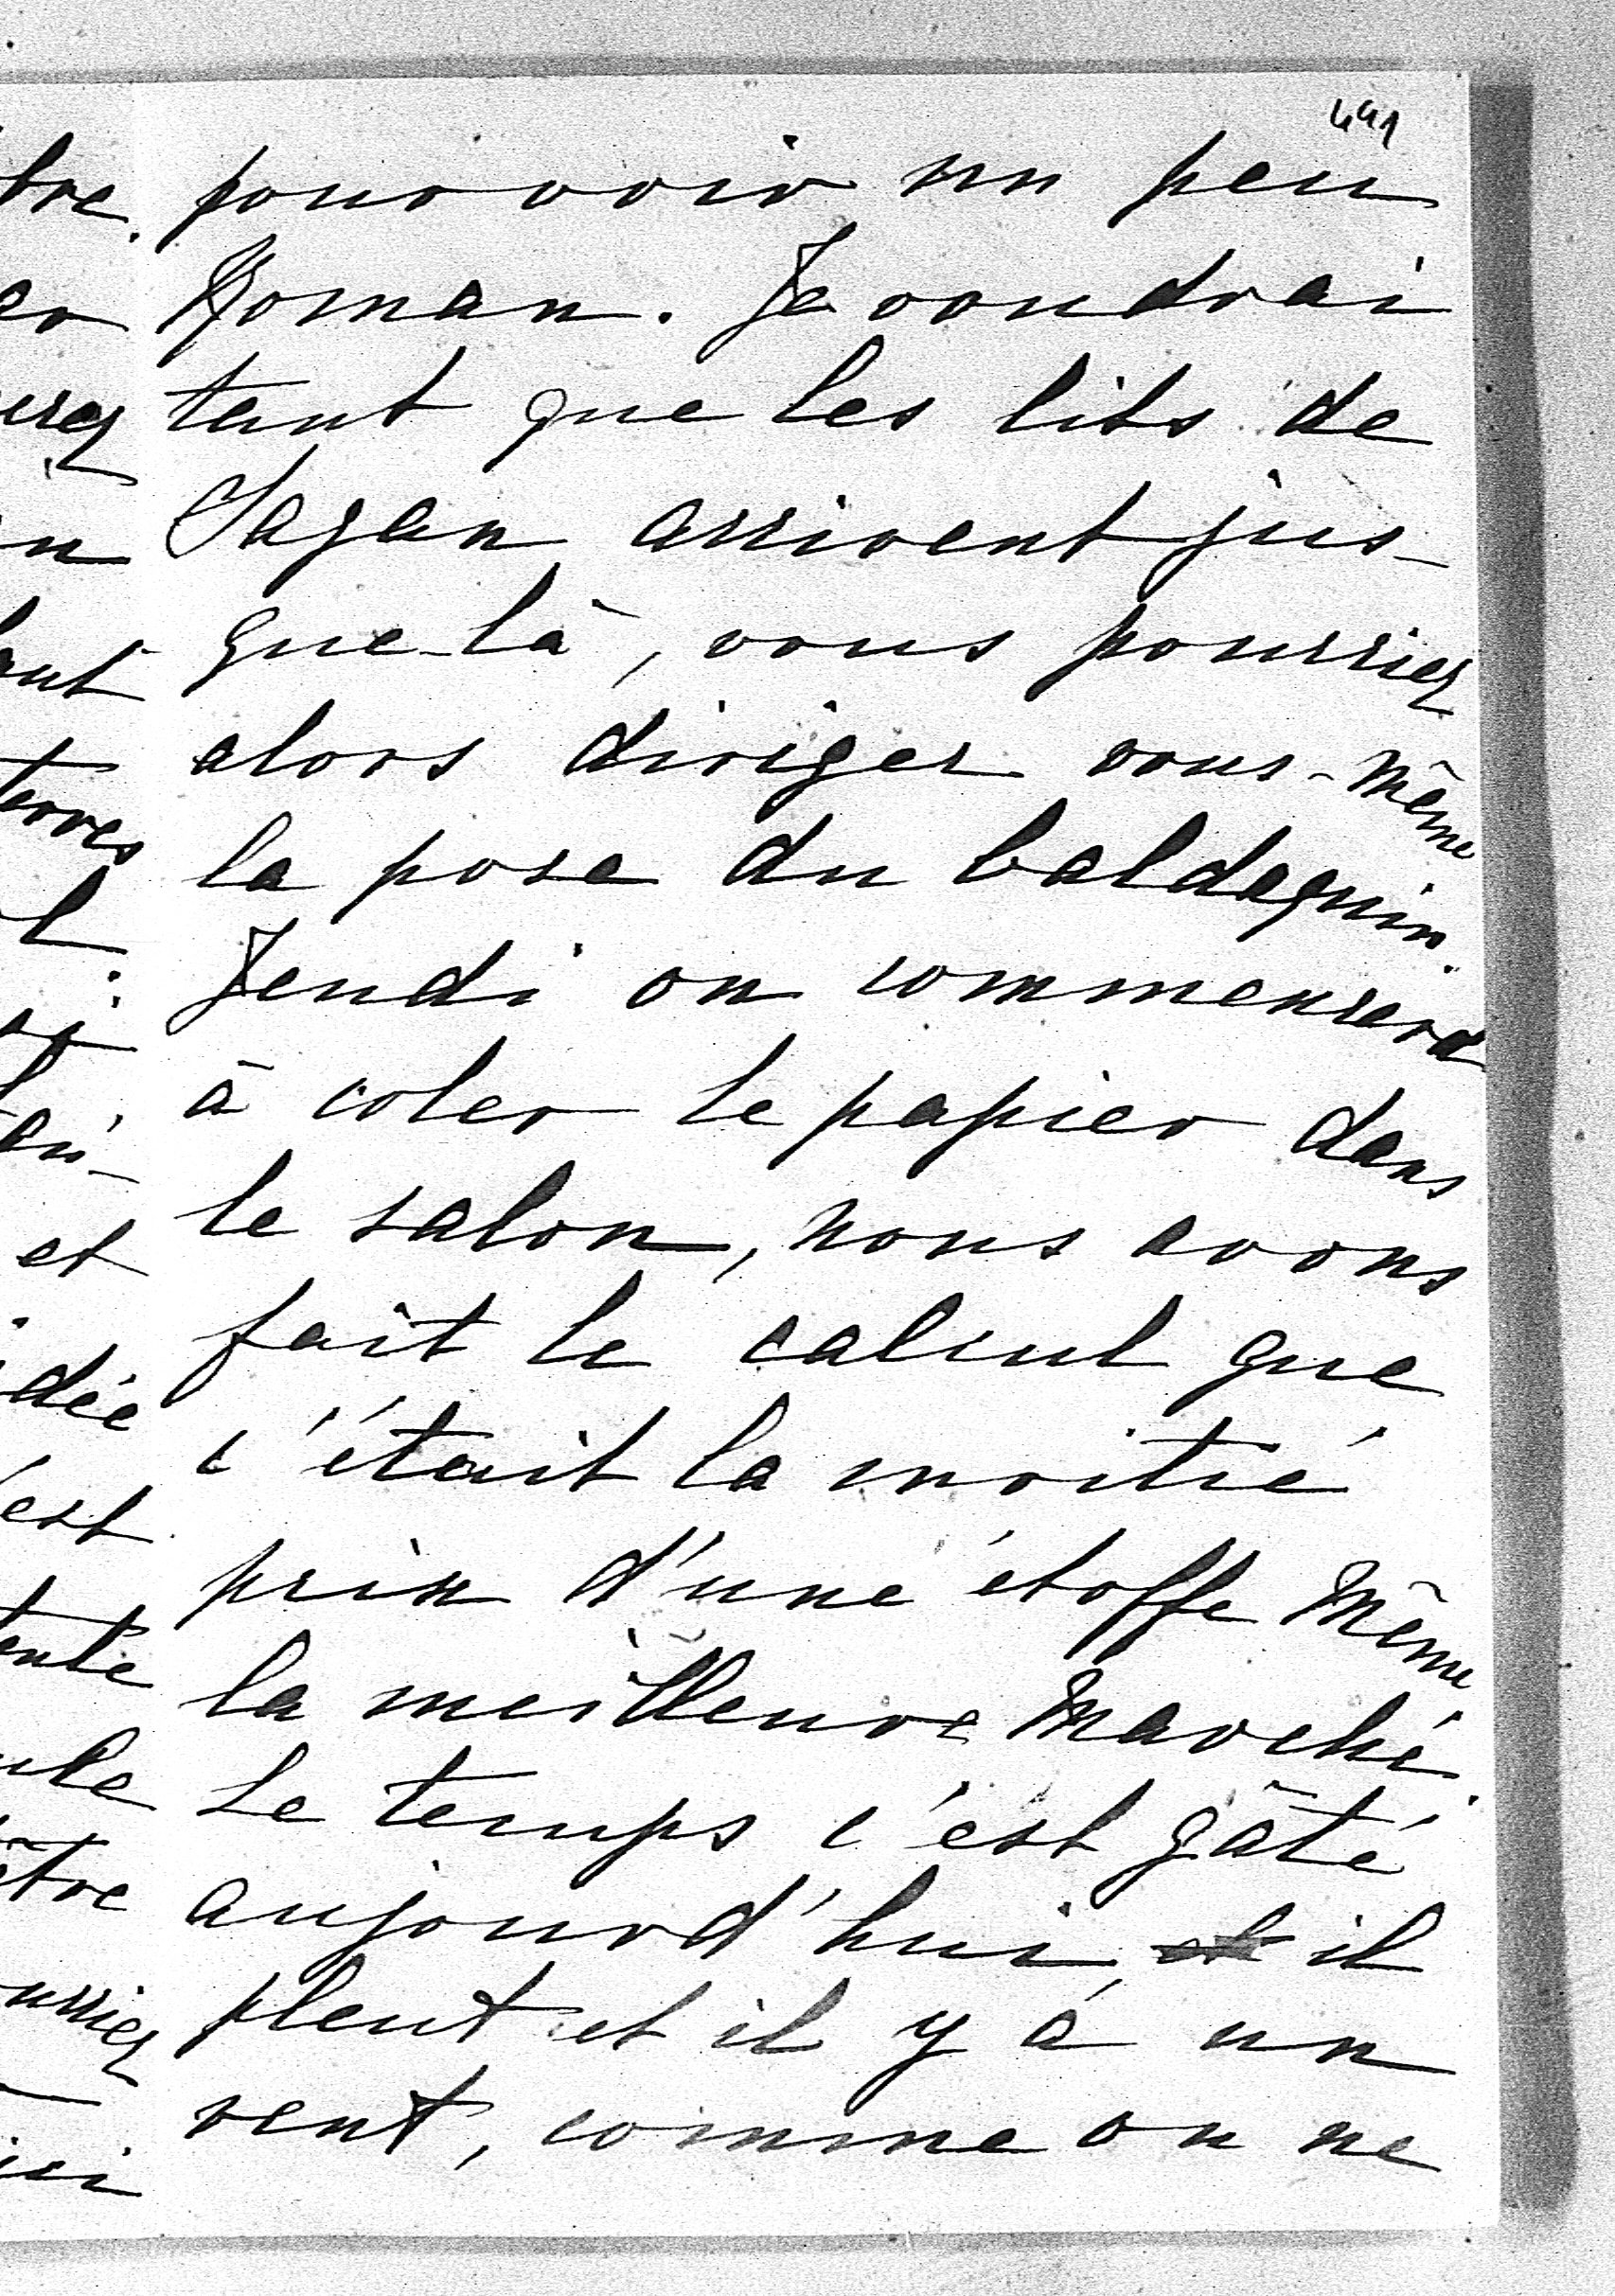 491
pour voir un peu
Roman. Je voudrai
tant que les lits de
Sagan arrivent jus-
que-là, vous pourriez
alors diriger vous-même
la pose du baldaquin.
Jeudi on commencera
à coler le papier dans
le salon, nous avons
fait le calcul que
c'était la moitié
prix d'une étoffe même
la meilleure marché.
Le temps c'est gâté
aujourd'hui, et il
pleut et il y à un
vent, comme on ne